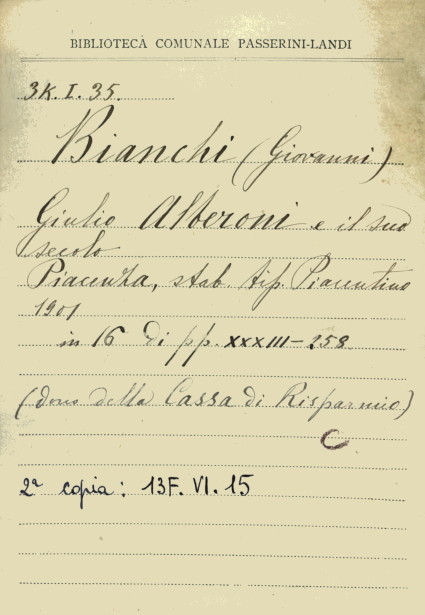 BIBLIOTECA COMUNALE PASSERINI-LANDI
3K. I. 35.
Bianchi (Giovanni)
Giulio Alberoni e il suo
secolo
Piacenza, stab. tip. Piacentino
1901
in 16 di pp. XXXIII-258
(dono della Cassa di Risparmio)
C
2ª copia: 13F. VI. 15